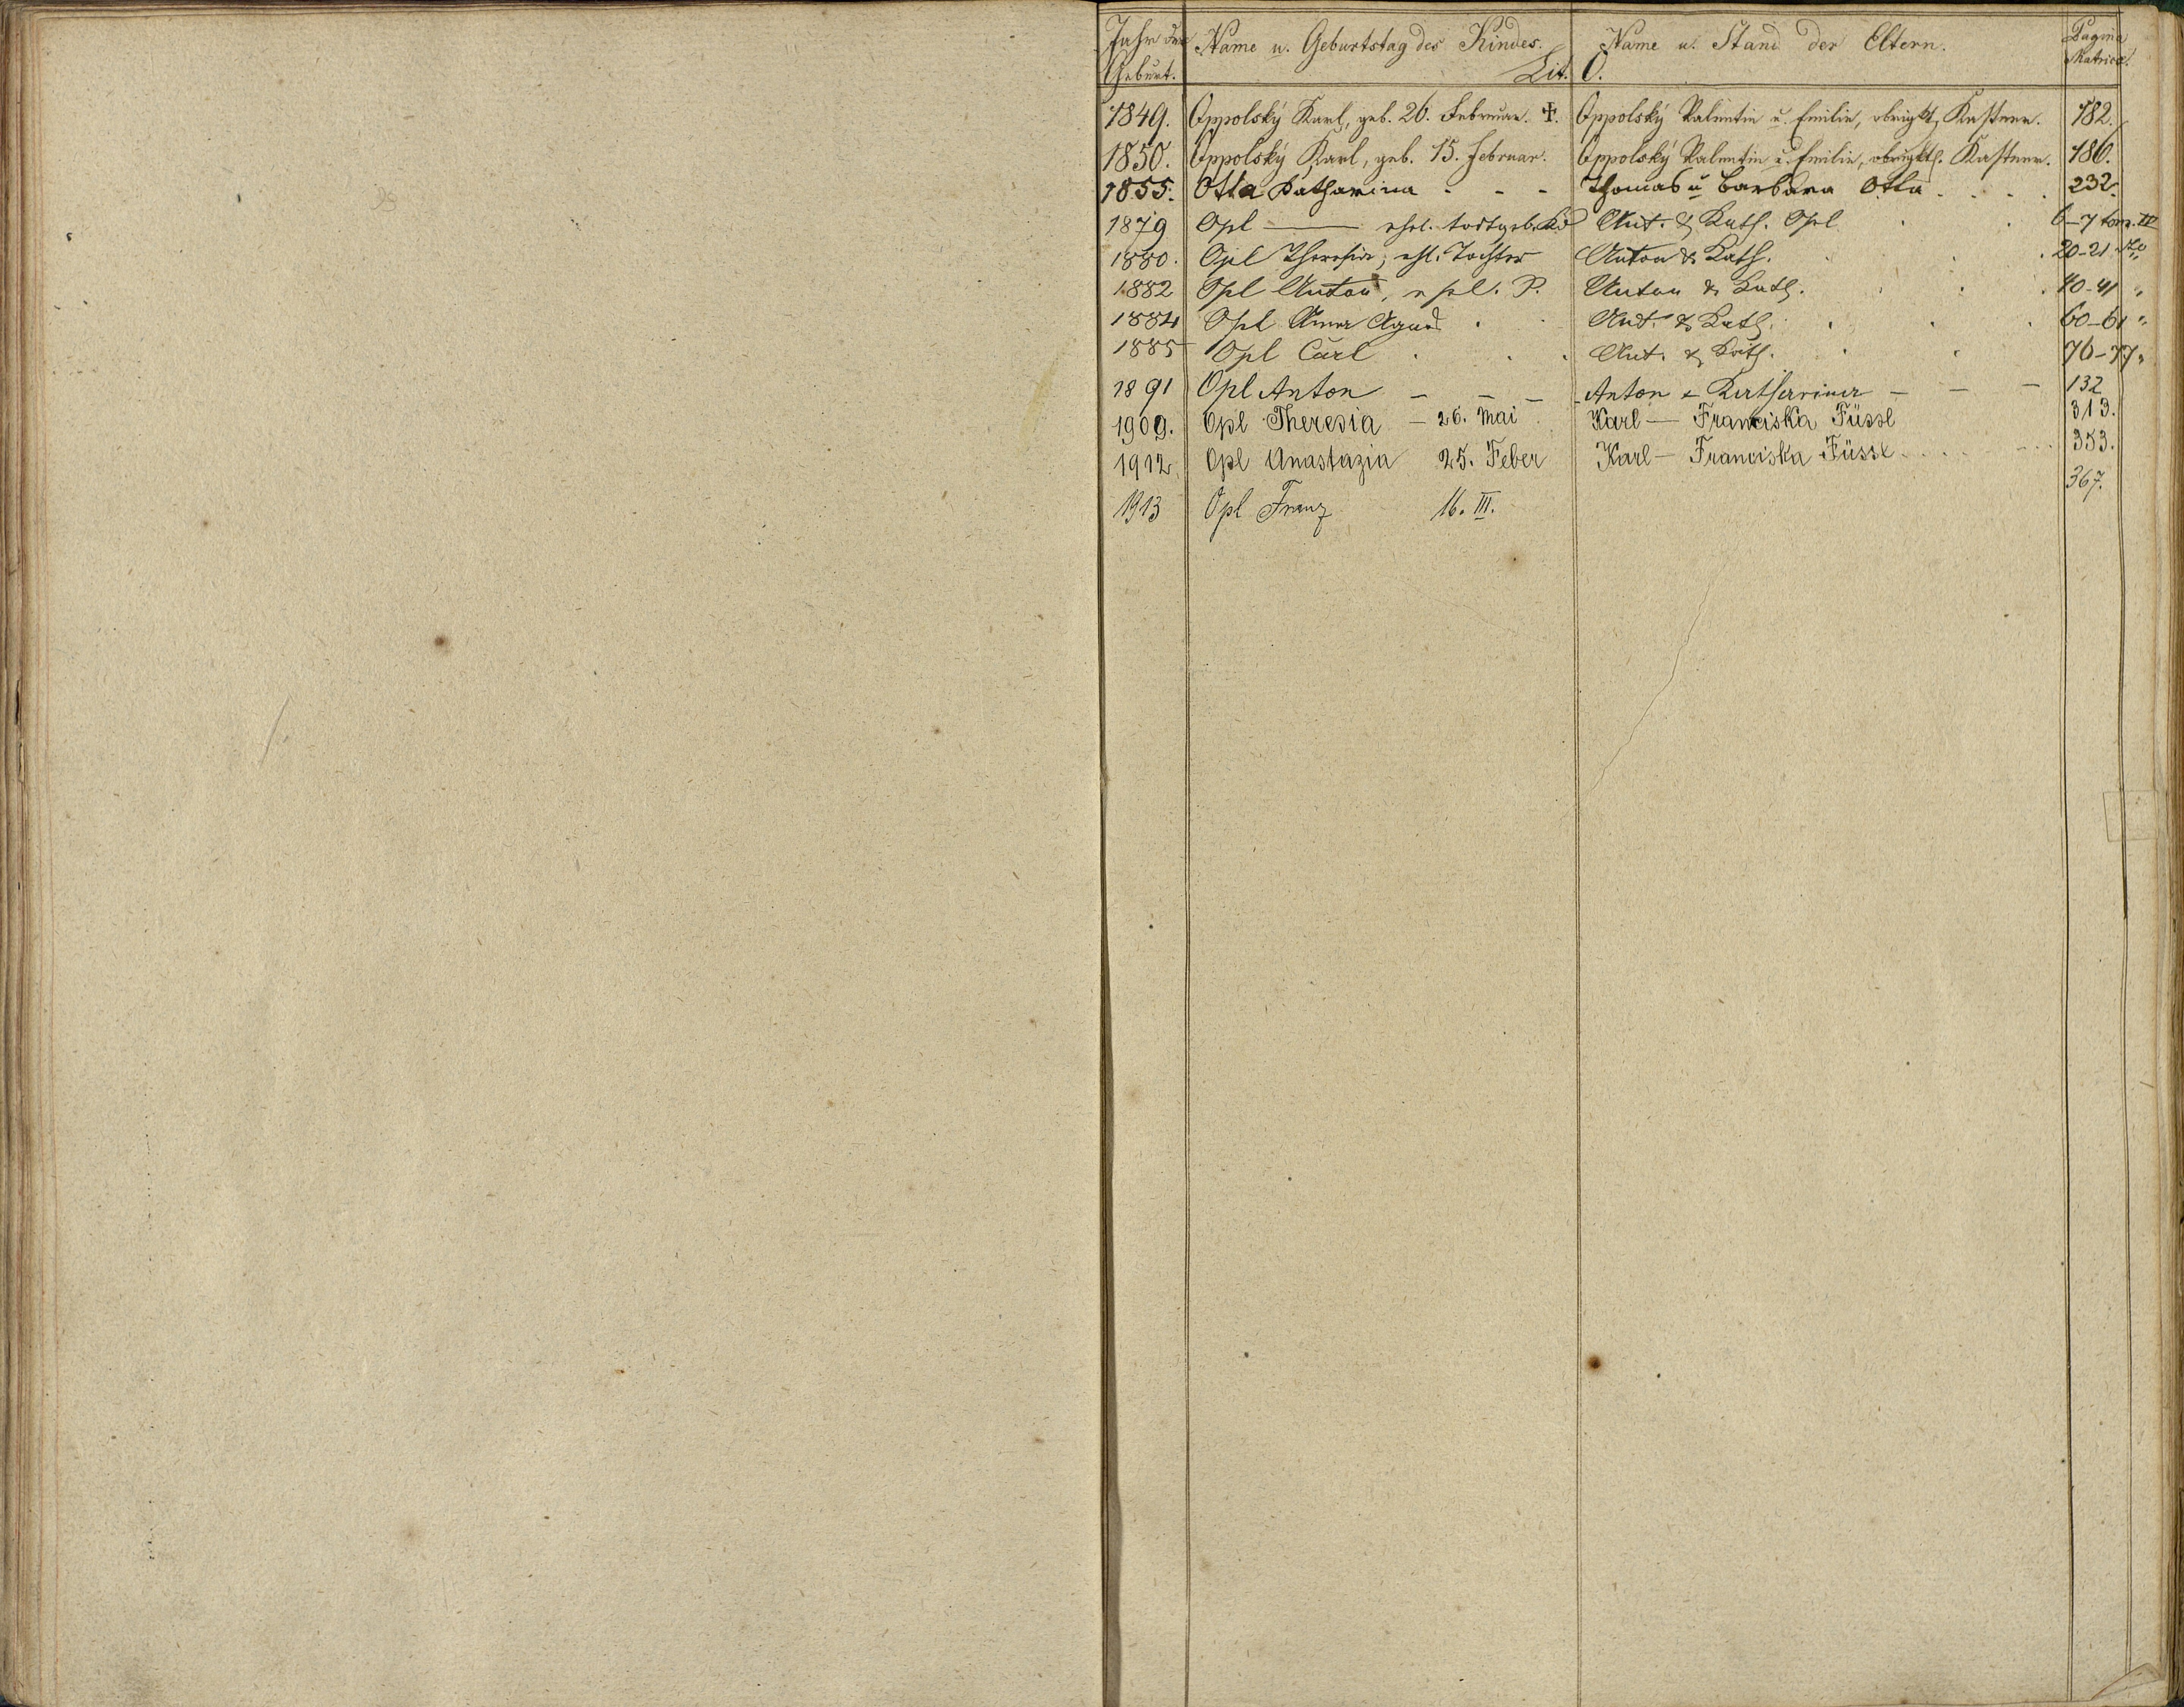 Jahr der Geburt. Name u. Geburtstag des Kindes. Name u. Stand der Eltern. Pagina Matricae.
Lit. O.
1849. Oppolský Karl, geb. 26. Februar. ✝. Oppolský Valentin u. Emilie, obrigktl. Kastner. 182.
1850. Oppolský Karl, geb. 15. Februar. Oppolský Valentin u. Emilie, obrigktl. Kastner. 186.
1855. Otta Katharina - - - Thomas u Barbara Otta . . . . 232.
1879 Opl —— ehel. todtgeb. Kd Ant. & Kath. Opl . . 6-7 tom. IV
1880. Opl Theresia, ehl. Tochter Anton & Kath. . . . 20-21
1882 Opl Anton, ehel. Anton & Kath. . . . 40-41 "
1884 Opl Anna Agnes . . Ant. & Kath. . . . 60-61 "
1885 Opl Carl . . . Ant. & Kath. . . 76-77 "
1891 Opl Anton - - - Anton & Katharina - - - 132
1909. Opl Theresia - 26. Mai . Karl — Franciska Füssl 313.
1912. Opl Anastazia 25. Feber Karl — Franciska Füssl . . . . 353.
1913 Opl Franz 16. III. 367.